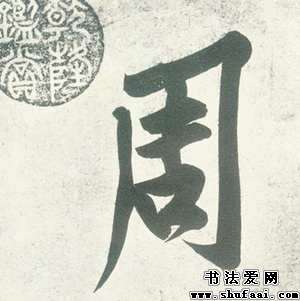 乾隆
鑑賞
周
书法爱网
www.shufaai.com